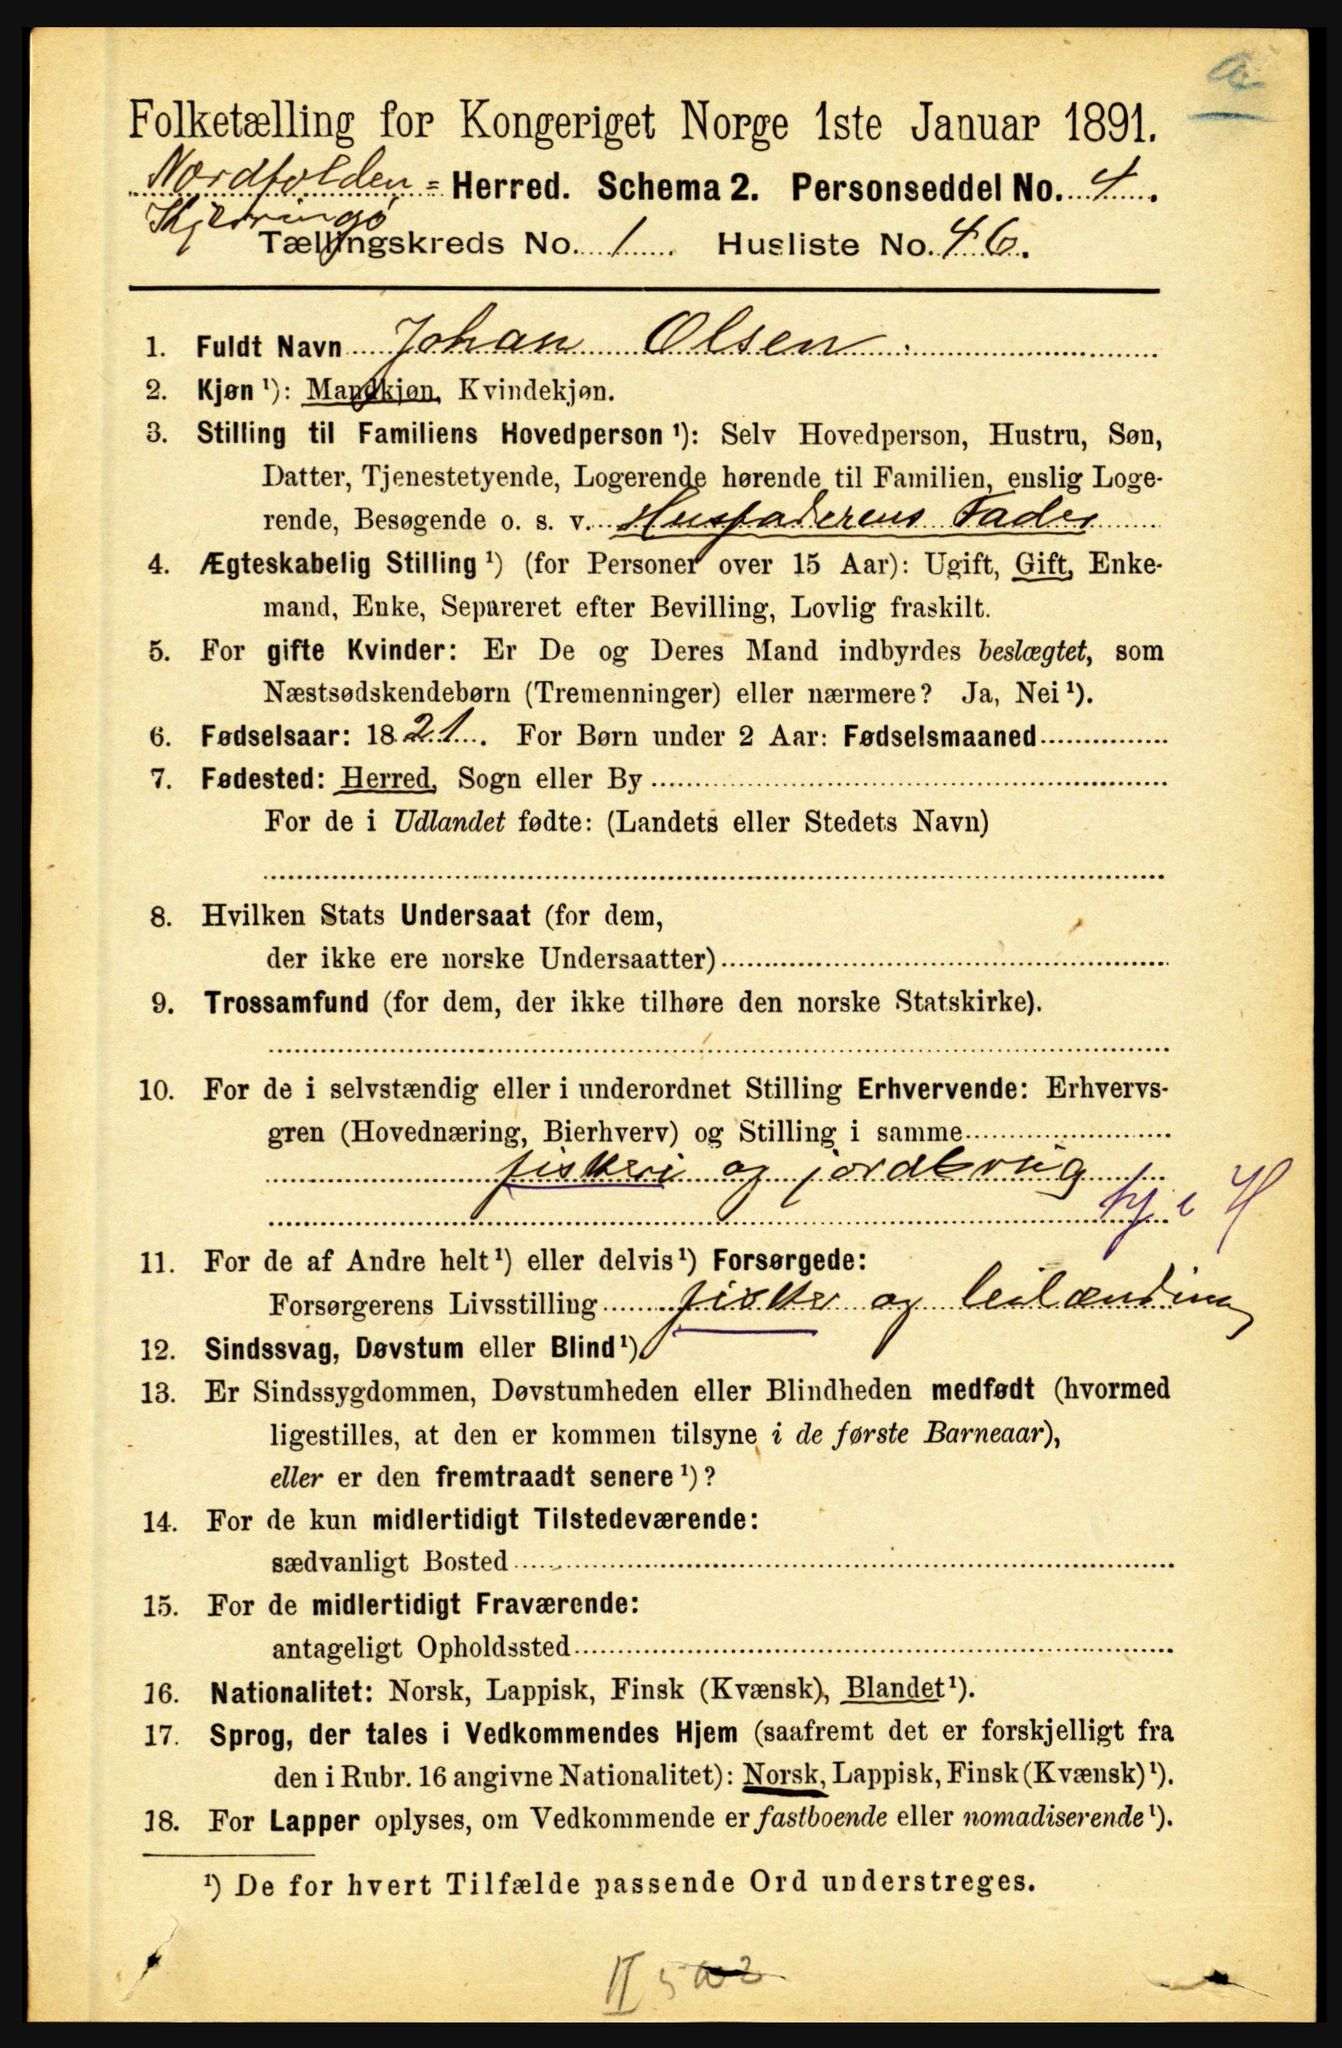 a
Folketælling for Kongeriget Norge 1ste Januar 1891.
Nordfolden = Herred. Schema 2. Personseddel No. 4.
Kjerringø
Tællingskreds No. 1. Husliste No. 46.
1. Fuldt Navn Johan Olsen
2. Kjøn ¹): Mandkjøn, Kvindekjøn.
3. Stilling til Familiens Hovedperson ¹): Selv Hovedperson, Hustru, Søn,
Datter, Tjenestetyende, Logerende hørende til Familien, enslig Loge-
rende, Besøgende o. s. v. Husfaderens Fader
4. Ægteskabelig Stilling ¹) (for Personer over 15 Aar): Ugift, Gift, Enke-
mand, Enke, Separeret efter Bevilling, Lovlig fraskilt.
5. For gifte Kvinder: Er De og Deres Mand indbyrdes beslægtet, som
Næstsødskendebørn (Tremenninger) eller nærmere? Ja, Nei ¹).
6. Fødselsaar: 1821. For Børn under 2 Aar: Fødselsmaaned
7. Fødested: Herred, Sogn eller By
For de i Udlandet fødte: (Landets eller Stedets Navn)
8. Hvilken Stats Undersaat (for dem,
der ikke ere norske Undersaatter)
9. Trossamfund (for dem, der ikke tilhøre den norske Statskirke).
10. For de i selvstændig eller i underordnet Stilling Erhvervende: Erhvervs-
gren (Hovednæring, Bierhverv) og Stilling i samme
fiskeri og jordbrug
11. For de af Andre helt ¹) eller delvis ¹) Forsørgede:
Forsørgerens Livsstilling fisker og leilænding
12. Sindssvag, Døvstum eller Blind ¹).
13. Er Sindssygdommen, Døvstumheden eller Blindheden medfødt (hvormed
ligestilles, at den er kommen tilsyne i de første Barneaar),
eller er den fremtraadt senere ¹)?
14. For de kun midlertidigt Tilstedeværende:
sædvanligt Bosted
15. For de midlertidigt Fraværende:
antageligt Opholdssted
16. Nationalitet: Norsk, Lappisk, Finsk (Kvænsk), Blandet ¹).
17. Sprog, der tales i Vedkommendes Hjem (saafremt det er forskjelligt fra
den i Rubr. 16 angivne Nationalitet): Norsk, Lappisk, Finsk (Kvænsk) ¹).
18. For Lapper oplyses, om Vedkommende er fastboende eller nomadiserende ¹).
¹) De for hvert Tilfælde passende Ord understreges.
II 5